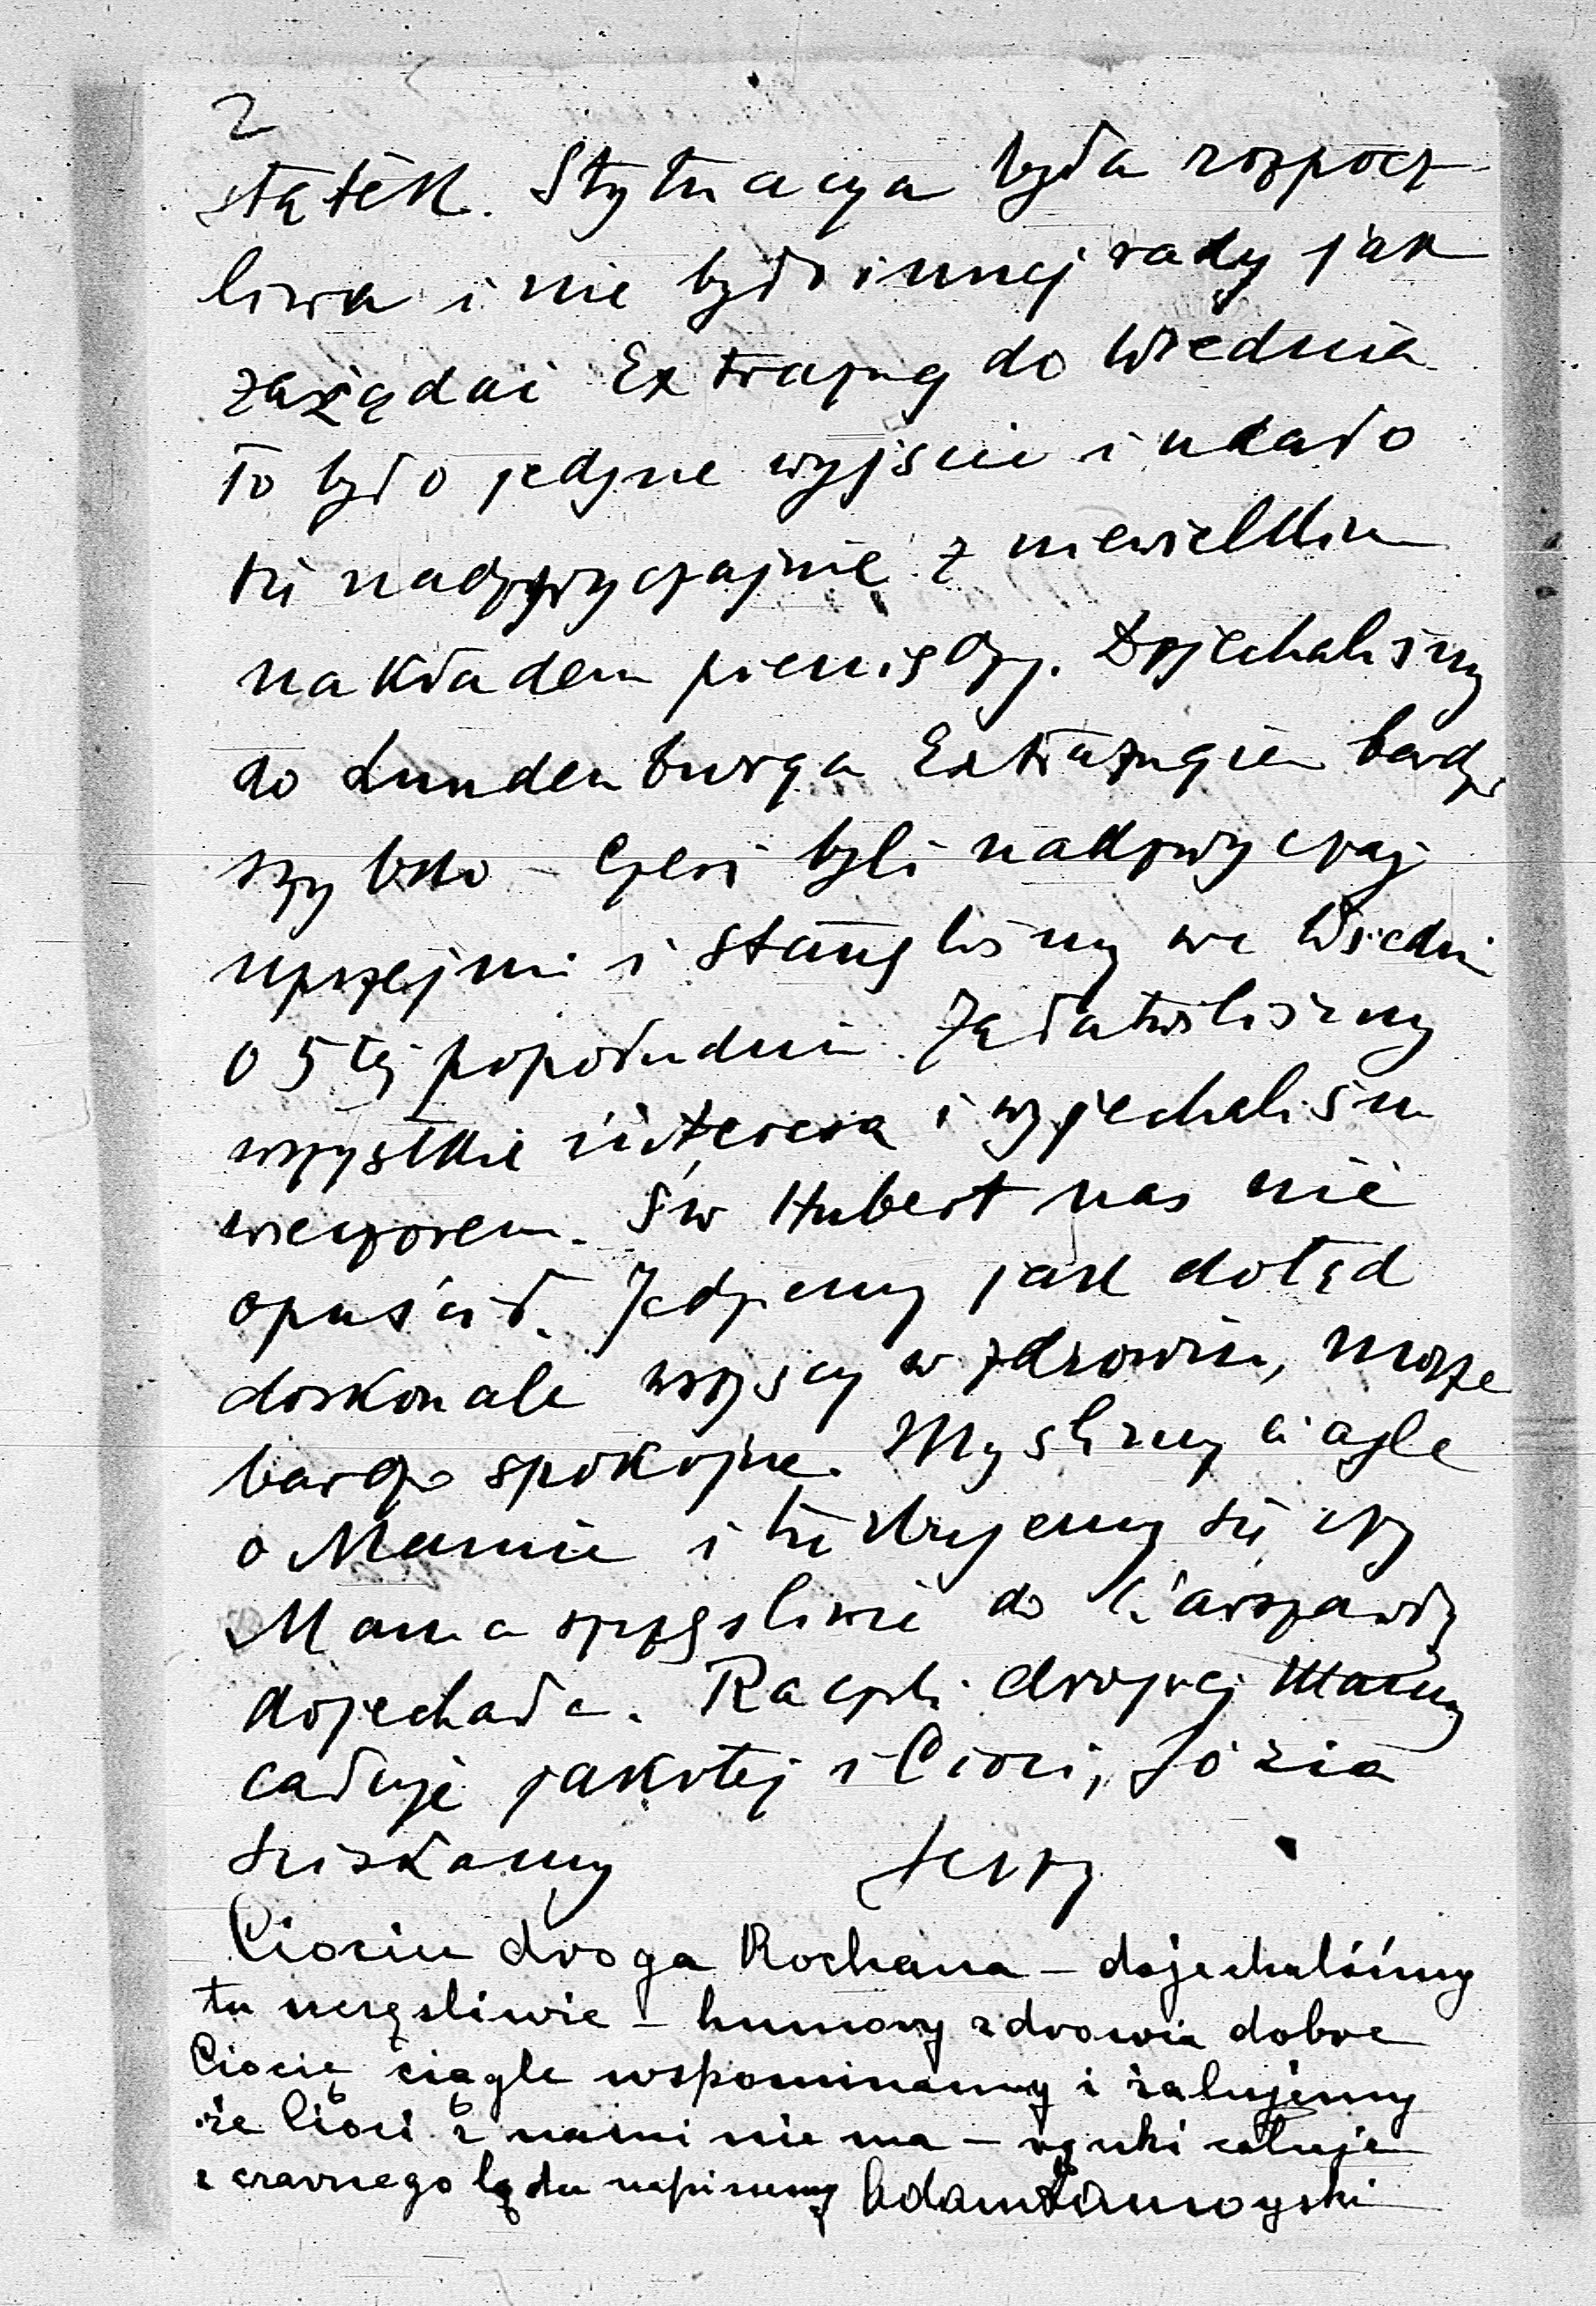 2
statek. Sytuacya była rozpocz
liwa i nie było innej rady jak
zażądać Extrazug do Wiednia
To było jedyne wyjście i udało
się nadzwyczajnie z niewielkim
nakładem pieniędzy. Dojechaliśmy
do Lundenburga Extrazugiem bardzo
szybko – Czesi byli nadzwyczaj
uprzejmi i stanęliśmy we Wiedniu
o 5tej popołudniu. Załatwiliśmy
wszystkie interesa i wyjechaliśmy
wieczorem. Św Hubert nas nie
opuścił. Jedziemy jak dotąd
doskonale wszyscy w zdrowiu, morze
bardzo spokojne. Myślimy ciągle
o Mamie i
Mama szczęśliwie do Warszawy
dojechała. Rączki drogiej Mamy
całuję jakotej i Cioci, Józia
ściskamy Jerzy
Ciociu droga Kochana – dojechaliśmy
tu szczęśliwie – humory zdrowia dobre
Ciocię ciągle wspominamy i żałujemy
że Cioci z nami nie ma – rączki całuję
z czarnego lądu napiszemy Adam Zamoyski